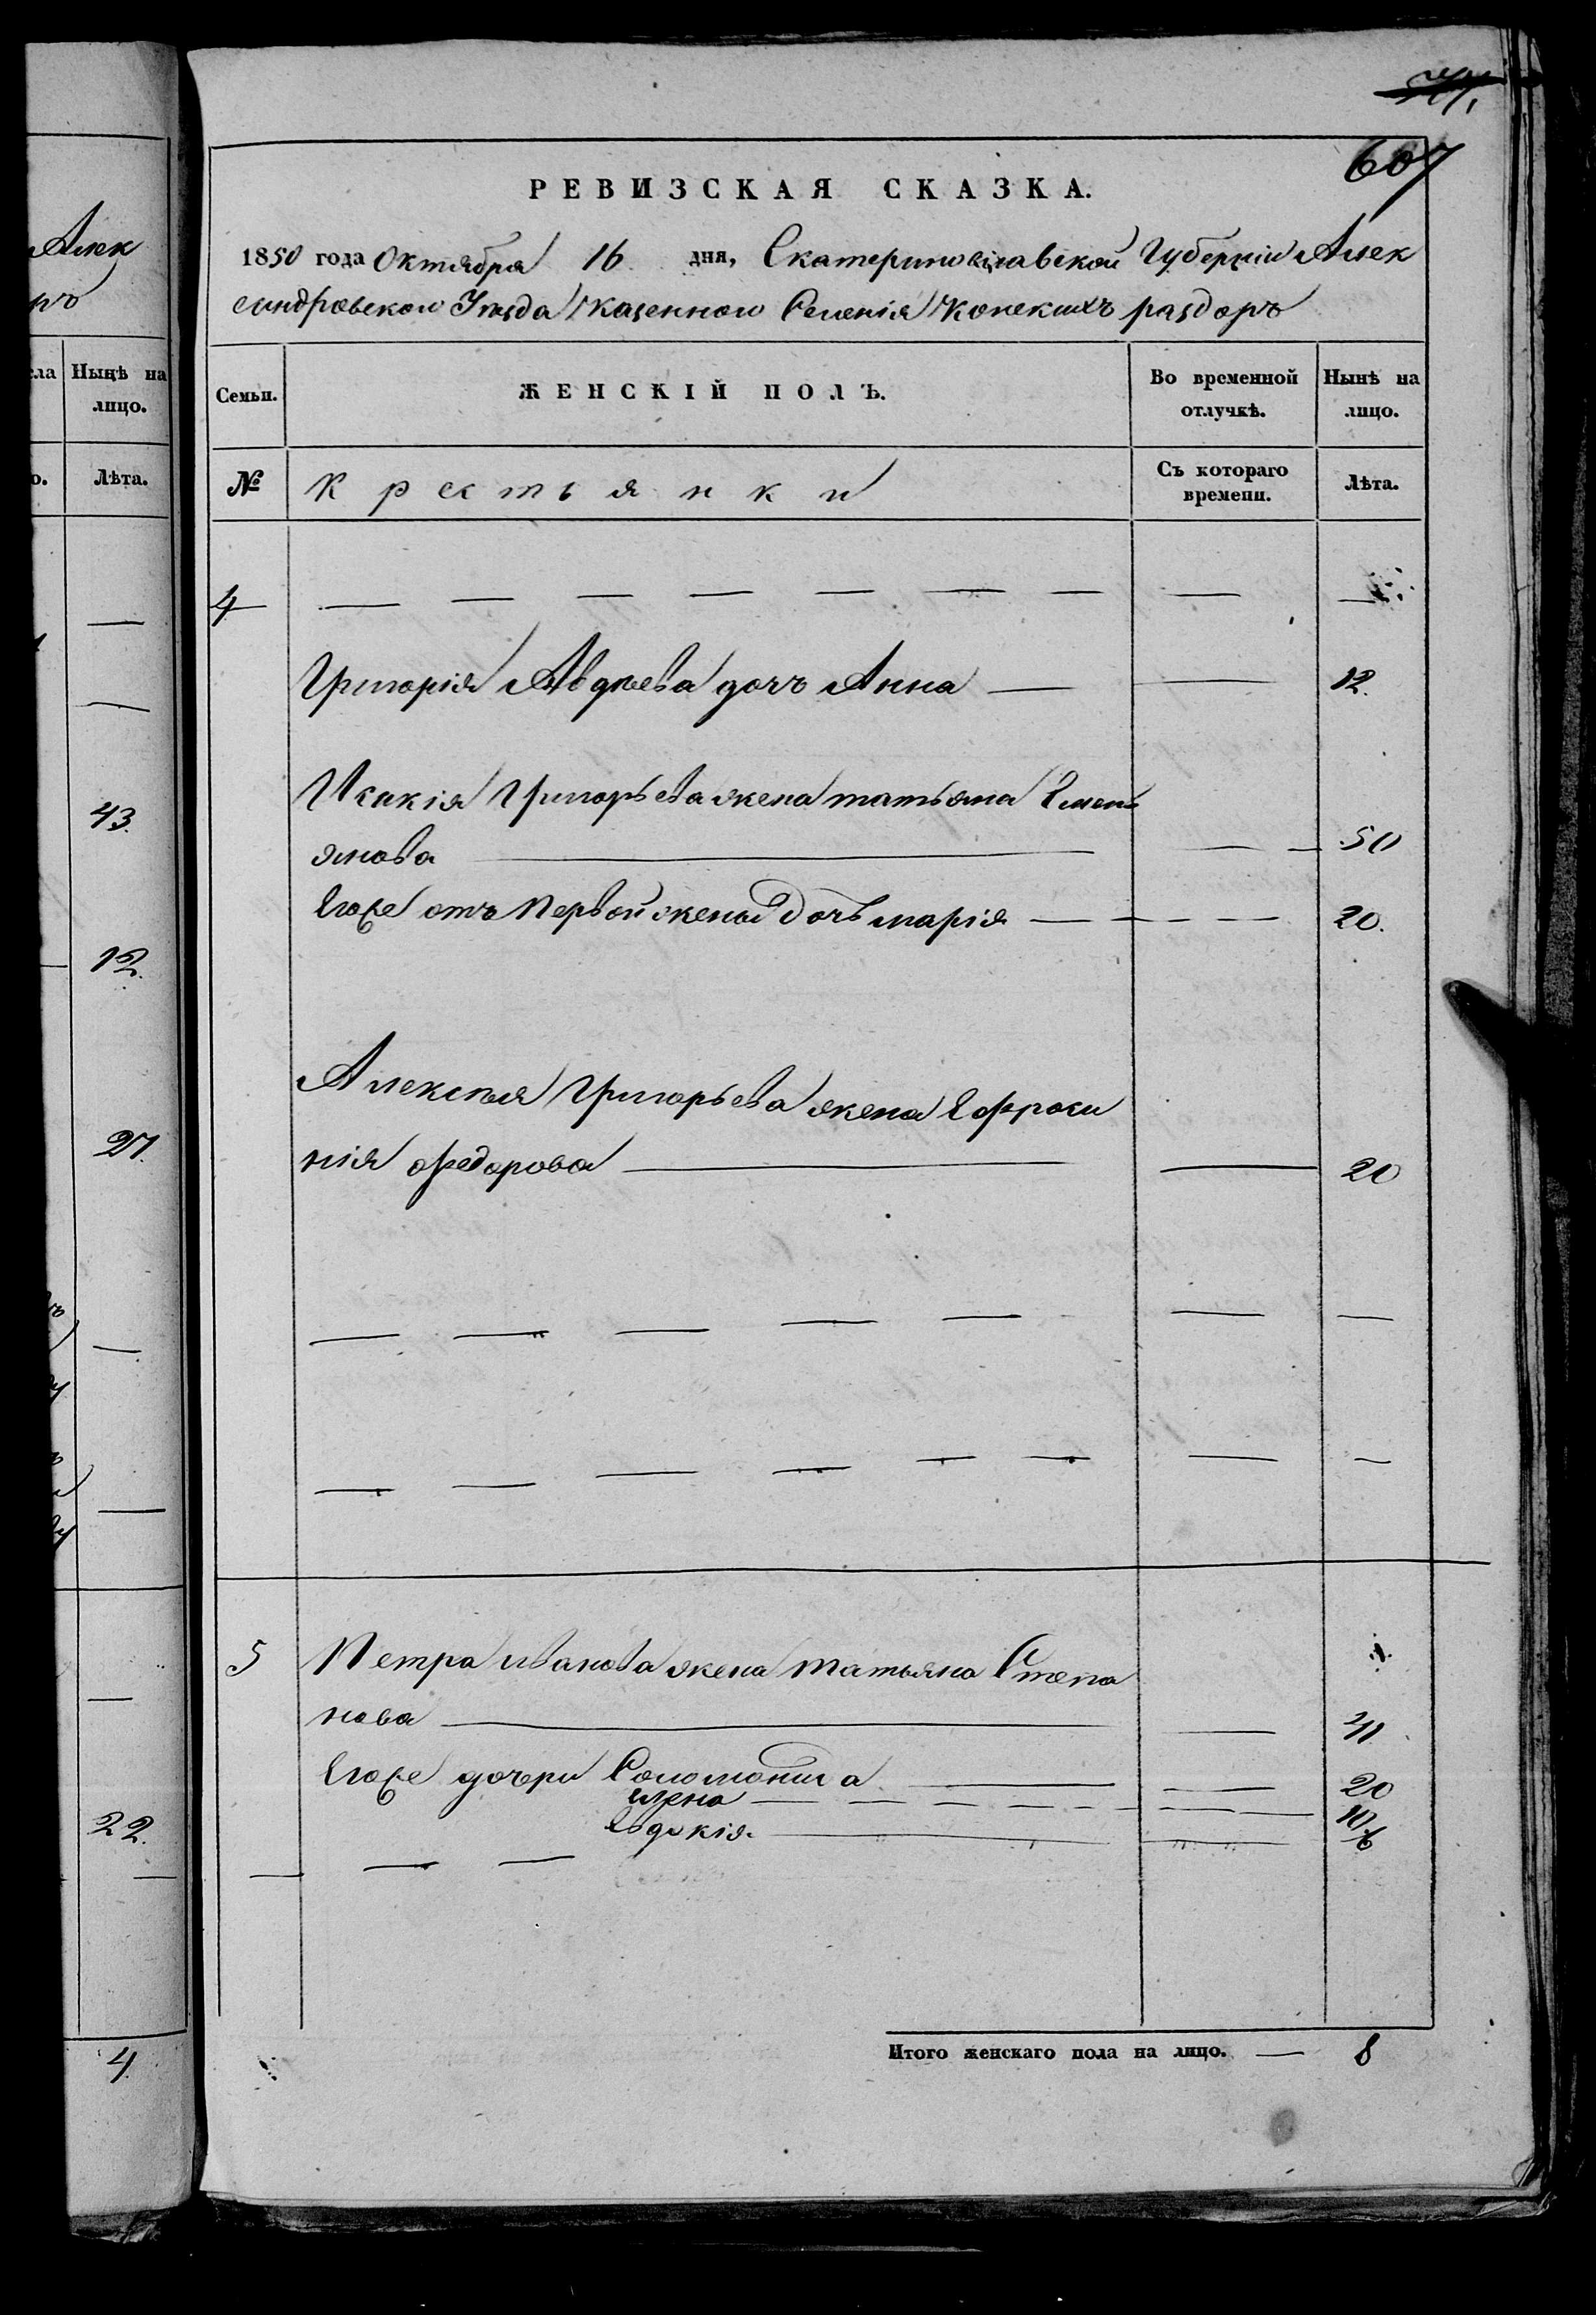 Алек
607
РЕВИЗСКАЯ СКАЗКА.
1850 года Октября 16 дня, Екатеринославской Губерніи Алек
сандровскои Уѣзда Казенного Селенія Конскихъ раздоръ
сла Нынѣ на лицо.
о. Лѣта.
Семьи. ЖЕНСКІЙ ПОЛЪ. Во временной отлучкѣ. Нынѣ на лицо.
№ Крестьянки Съ котораго времени. Лѣта.
4 — — — — — — — — —
Григорія Авдѣева дочъ Анна — — 12.
43.
Исакія Григорьева жена татьяна Емель
янова — — 50
Егоже отъ Первой жены Дочь марія — — 20.
12.
Алексѣя Григорьева жена Ефроси
27.
нія федорова — — 20
— — — — — — —
— — — — — — — —
5 Петра иванова жена татьяна Степа
нова — — 41
Егоже дочери Соломонида — — 20
елена — — 10
22.
Евдокія — — 6
— —
4.
Итого женскаго пола на лицо. — 8